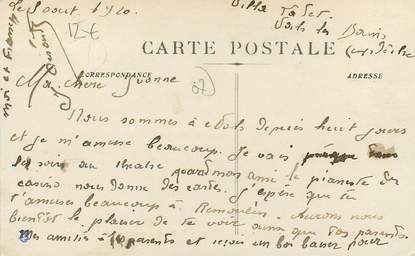 le 8 août 1920.
Villa
Vals les Bains
CARTE POSTALE
CORRESPONDANCE
ADRESSE
Ma chère Yvonne
Nous sommes à Vals depuis huit jours
et je m'amuse beaucoup. Je vais presque tous
les soirs au theatre quand mon ami le pianiste du
casino nous donne des cartes. J'espère que tu
t'amuses beaucoup à Remoulins. Aurons nous
bientôt le plaisir de te voir ainsi que tes parents.
Mes amitiés à tes parents et reçois un bon baiser pour